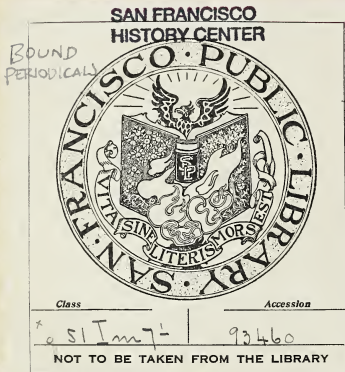 SAN FRANCISCO
HISTORY CENTER
BOUND
PERIODICALS
SAN · FRANCISCO · PUBLIC · LIBRARY ·
SPL
VITA SINE LITERIS MORS EST
Class
Accession
93460
NOT TO BE TAKEN FROM THE LIBRARY